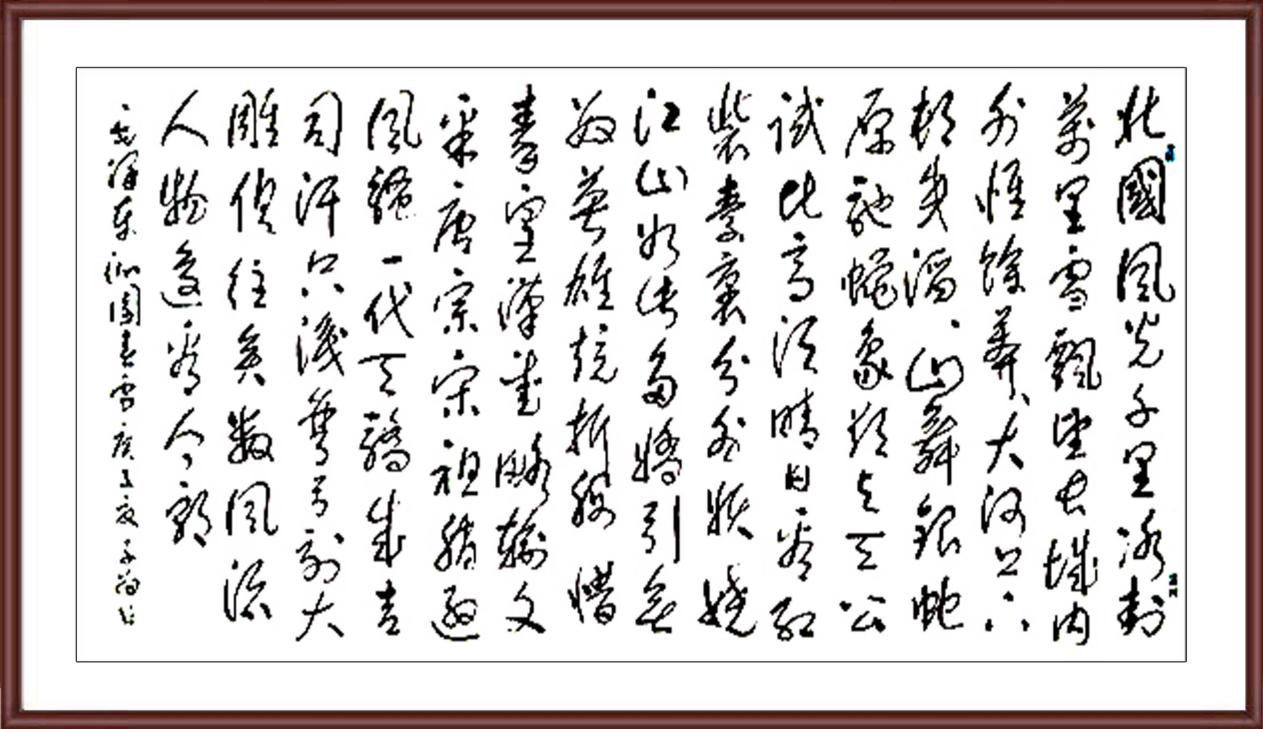 北國風光千里冰封
萬里雪飄望長城内
外惟餘莽、大河上下
頓失滔、山舞銀蛇
原馳蠟象欲与天公
試比高須晴日看紅
裝素裹分外妖嬈
江山如此多嬌引無
數英雄競折腰惜
秦皇漢武略輸文
采唐宗宋祖稍遜
風騷一代天驕成吉
司汗只識彎弓射大
雕俱往矣數風流
人物還看今朝
毛澤東沁園春雪庚子夏